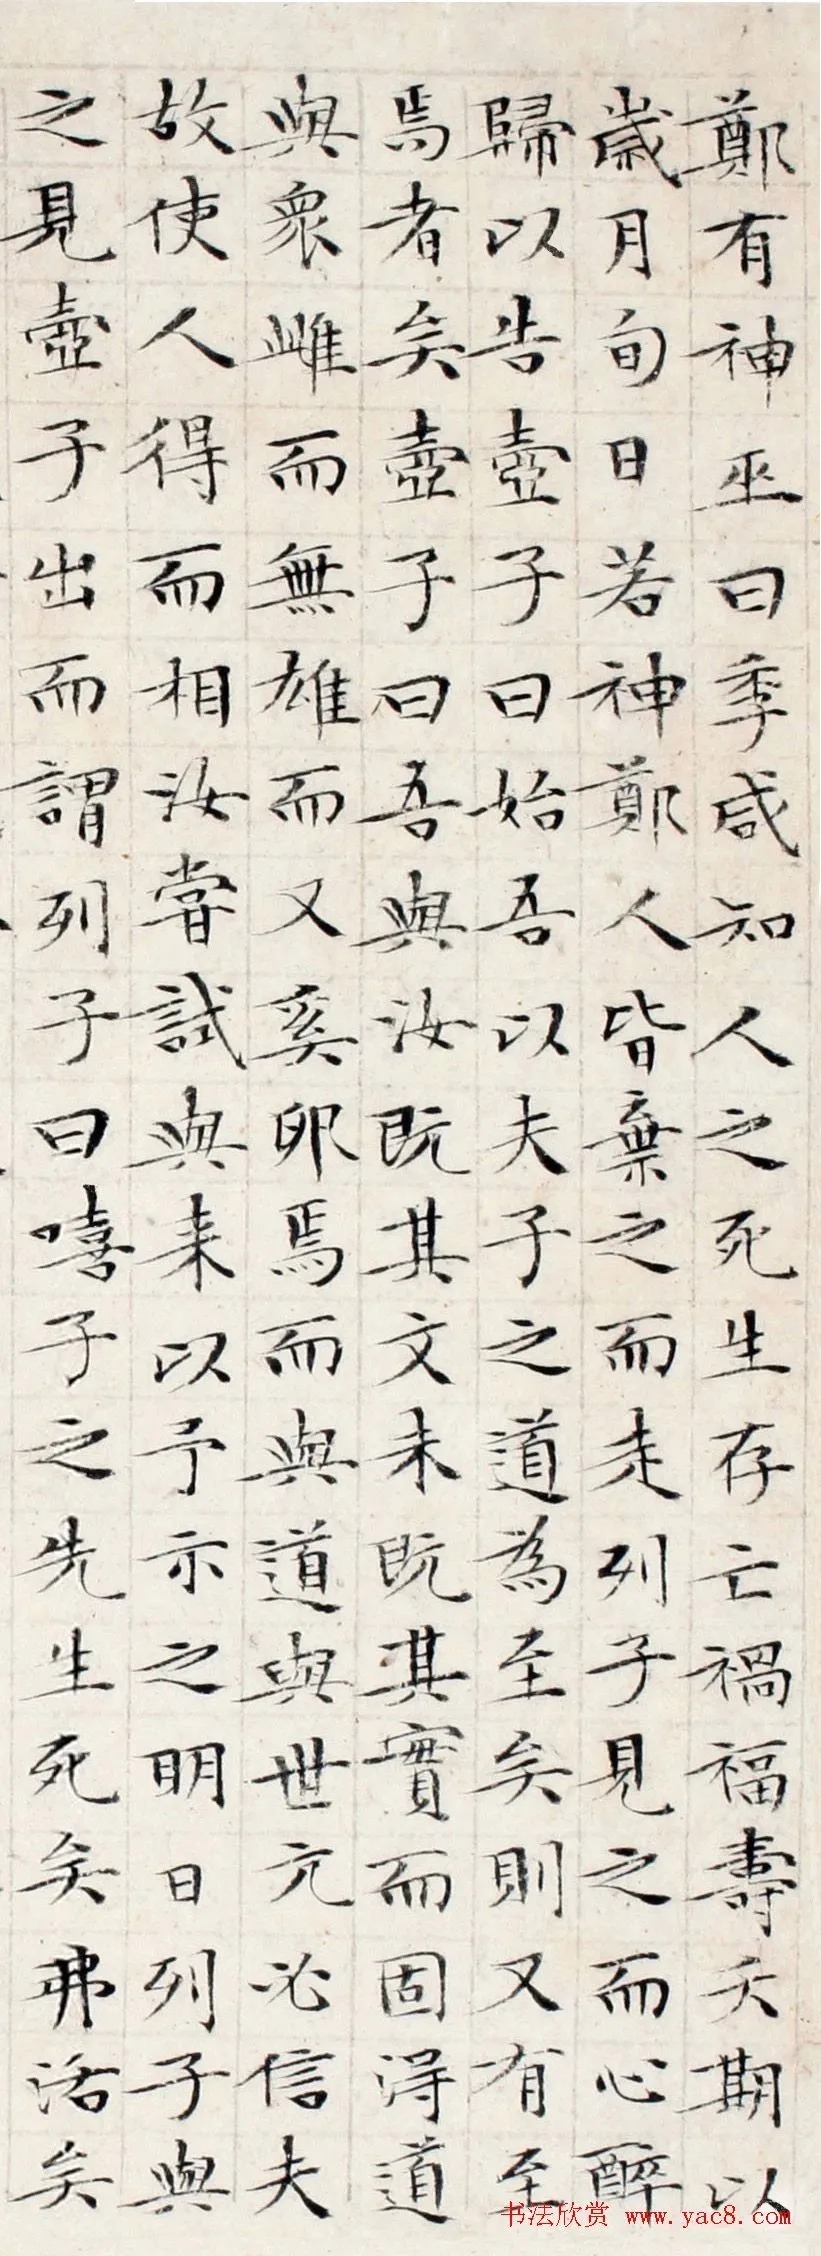 鄭有神巫曰季咸知人之死生存亡禍福壽夭期以
歲月旬日若神鄭人皆棄之而走列子見之而心醉
歸以告壺子曰始吾以夫子之道為至矣則又有至
焉者矣壺子曰吾與汝既其文未既其實而固得道
與眾雌而無雄而又奚卵焉而與道與世亢必信夫
故使人得而相汝嘗試與来以予示之明日列子與
之見壺子出而謂列子曰嘻子之先生死矣弗活矣
书法欣赏 www.yac8.com